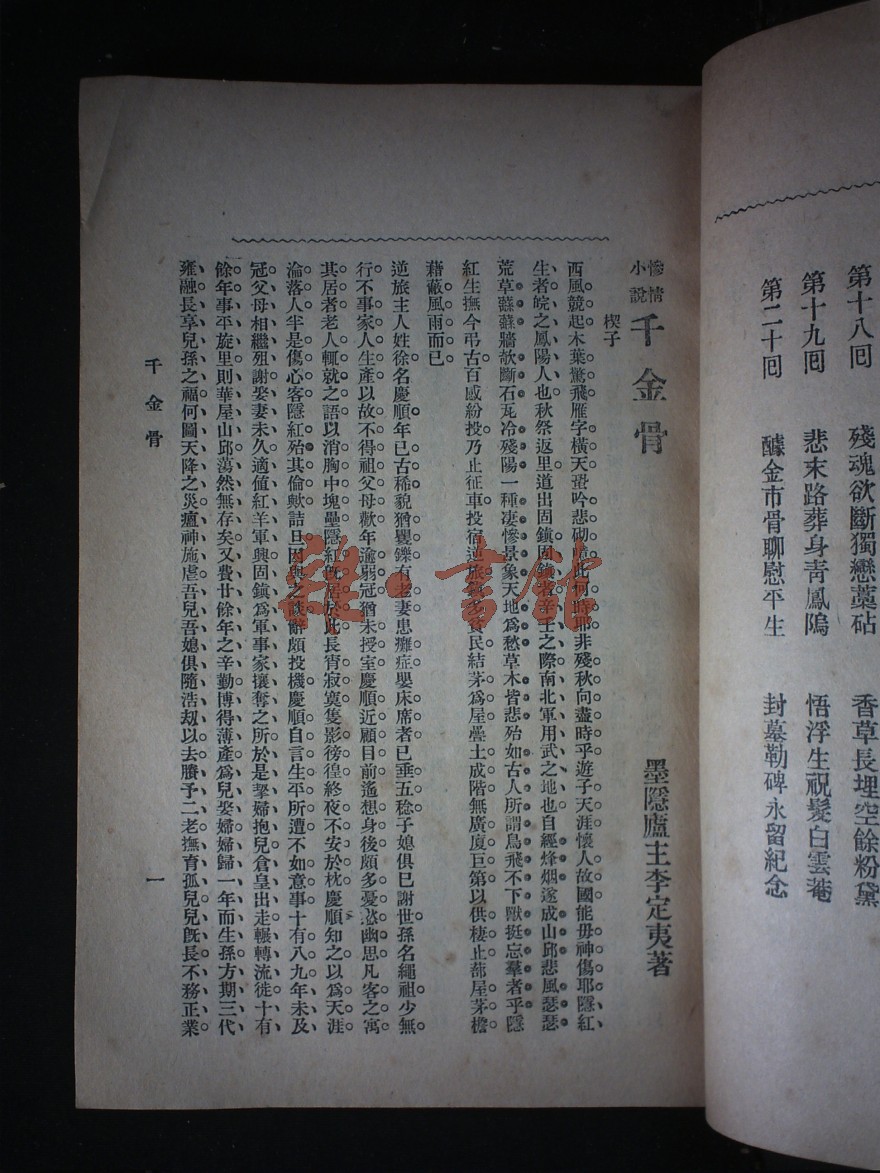 第十八回　殘魂欲斷獨戀藁砧　香草長埋空餘粉黛
第十九回　悲末路葬身青鳳塢　悟浮生祝髮白雲菴
第二十回　醵金市骨聊慰平生　封墓勒碑永留紀念
慘情小說 千金骨　墨隱廬主李定夷著
楔子
西風競起木葉驚飛雁字橫天蛩吟悲砌嗟此何時耶非殘秋向盡時乎遊子天涯懷人故國能毋神傷耶隱紅
生者皖之鳳陽人也秋祭返里道出固鎮固鎮者辛壬之際南北軍用武之地也自經烽烟遂成山邱悲風瑟瑟
荒草蘇蘇牆欹斷石瓦冷殘陽一種凄慘景象天地為愁草木皆悲殆如古人所謂鳥飛不下獸挺忘羣者乎隱
紅生撫今弔古百感紛投乃止征車投宿逆旅鎮多貧民結茅為屋壘土成階無廣廈巨第以供棲止蔀屋茅檐
藉蔽風雨而已
逆旅主人姓徐名慶順年已古稀貌猶矍鑠有老妻患癱症嬰床席者已垂五稔子媳俱已謝世孫名繩祖少無
行不事家人生產以故不得祖父母歡年逾弱冠猶未授室慶順近顧目前遙想身後頗多憂愁幽思凡客之寓
其居者老人輒就之語以消胸中塊壘隱紅既居於此長宵寂寞隻影徬徨終夜不安於枕慶順知之以為天涯
淪落人半是傷心客隱紅殆其倫歟詰旦因與之談辭頗投機慶順自言生平所遭不如意事十有八九年未及
冠父母相繼殂謝娶妻未久適値紅羊軍興固鎮為軍事家攘奪之所於是挈婦抱兒倉皇出走輾轉流徙十有
餘年事平旋里則華屋山邱蕩然無存矣又費廿餘年之辛勤博得薄產為兒娶婦婦歸一年而生孫方期三代
雍融長享兒孫之福何圖天降之災瘟神施虐吾兒吾媳俱隨浩劫以去賸予二老撫育孤兒兒既長不務正業
千金骨　一
雜·書館